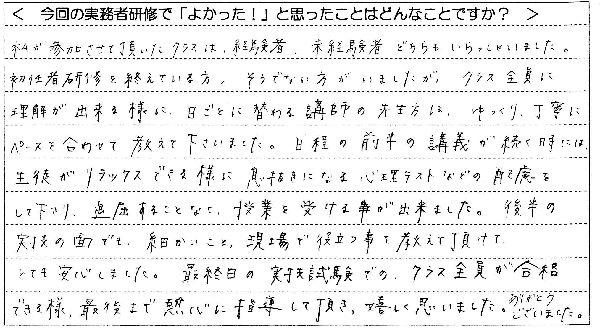 ＜ 今回の実務者研修で「よかった！」と思ったことはどんなことですか？ ＞
私が参加させて頂いたクラスは、経験者、未経験者 どちらもいらっしゃいました。
初任者研修を終えている方、そうでない方がいましたが、クラス全員に
理解が出来る様に、日ごとに替わる講師の先生方は、ゆっくり、丁寧に
ペースを合わせて教えて下さいました。日程の前半の講義が続く時には、
生徒がリラックスできる様に 息抜きになる心理テストなどの配慮を
して下さり、退屈することなく、授業を受ける事が出来ました。後半の
実技の面でも、細かいこと、現場で役立つ事を教えて頂けて、
とても安心しました。最終日の実技試験での、クラス全員が合格
できる様、最後まで熱心に指導して頂き、嬉しく思いました。ありがとう
ございました。